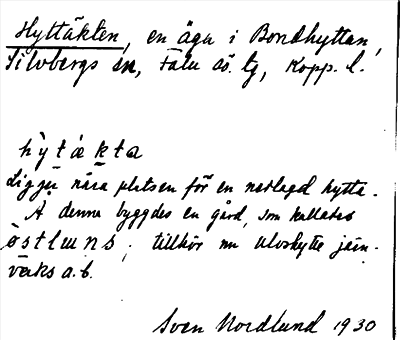 Hyttäkten, en äga i Bondhyttan,
Silvbergs sn, Falu sö. tg, Kopp. l.
hỳtækta
Ligger nära platsen för en nedlagd hytta.
Å denna byggdes en gård, som kallades
östlæns; tillhör nu Ulvshytte järn-
verks a.b.
Sven Nordlund 1930